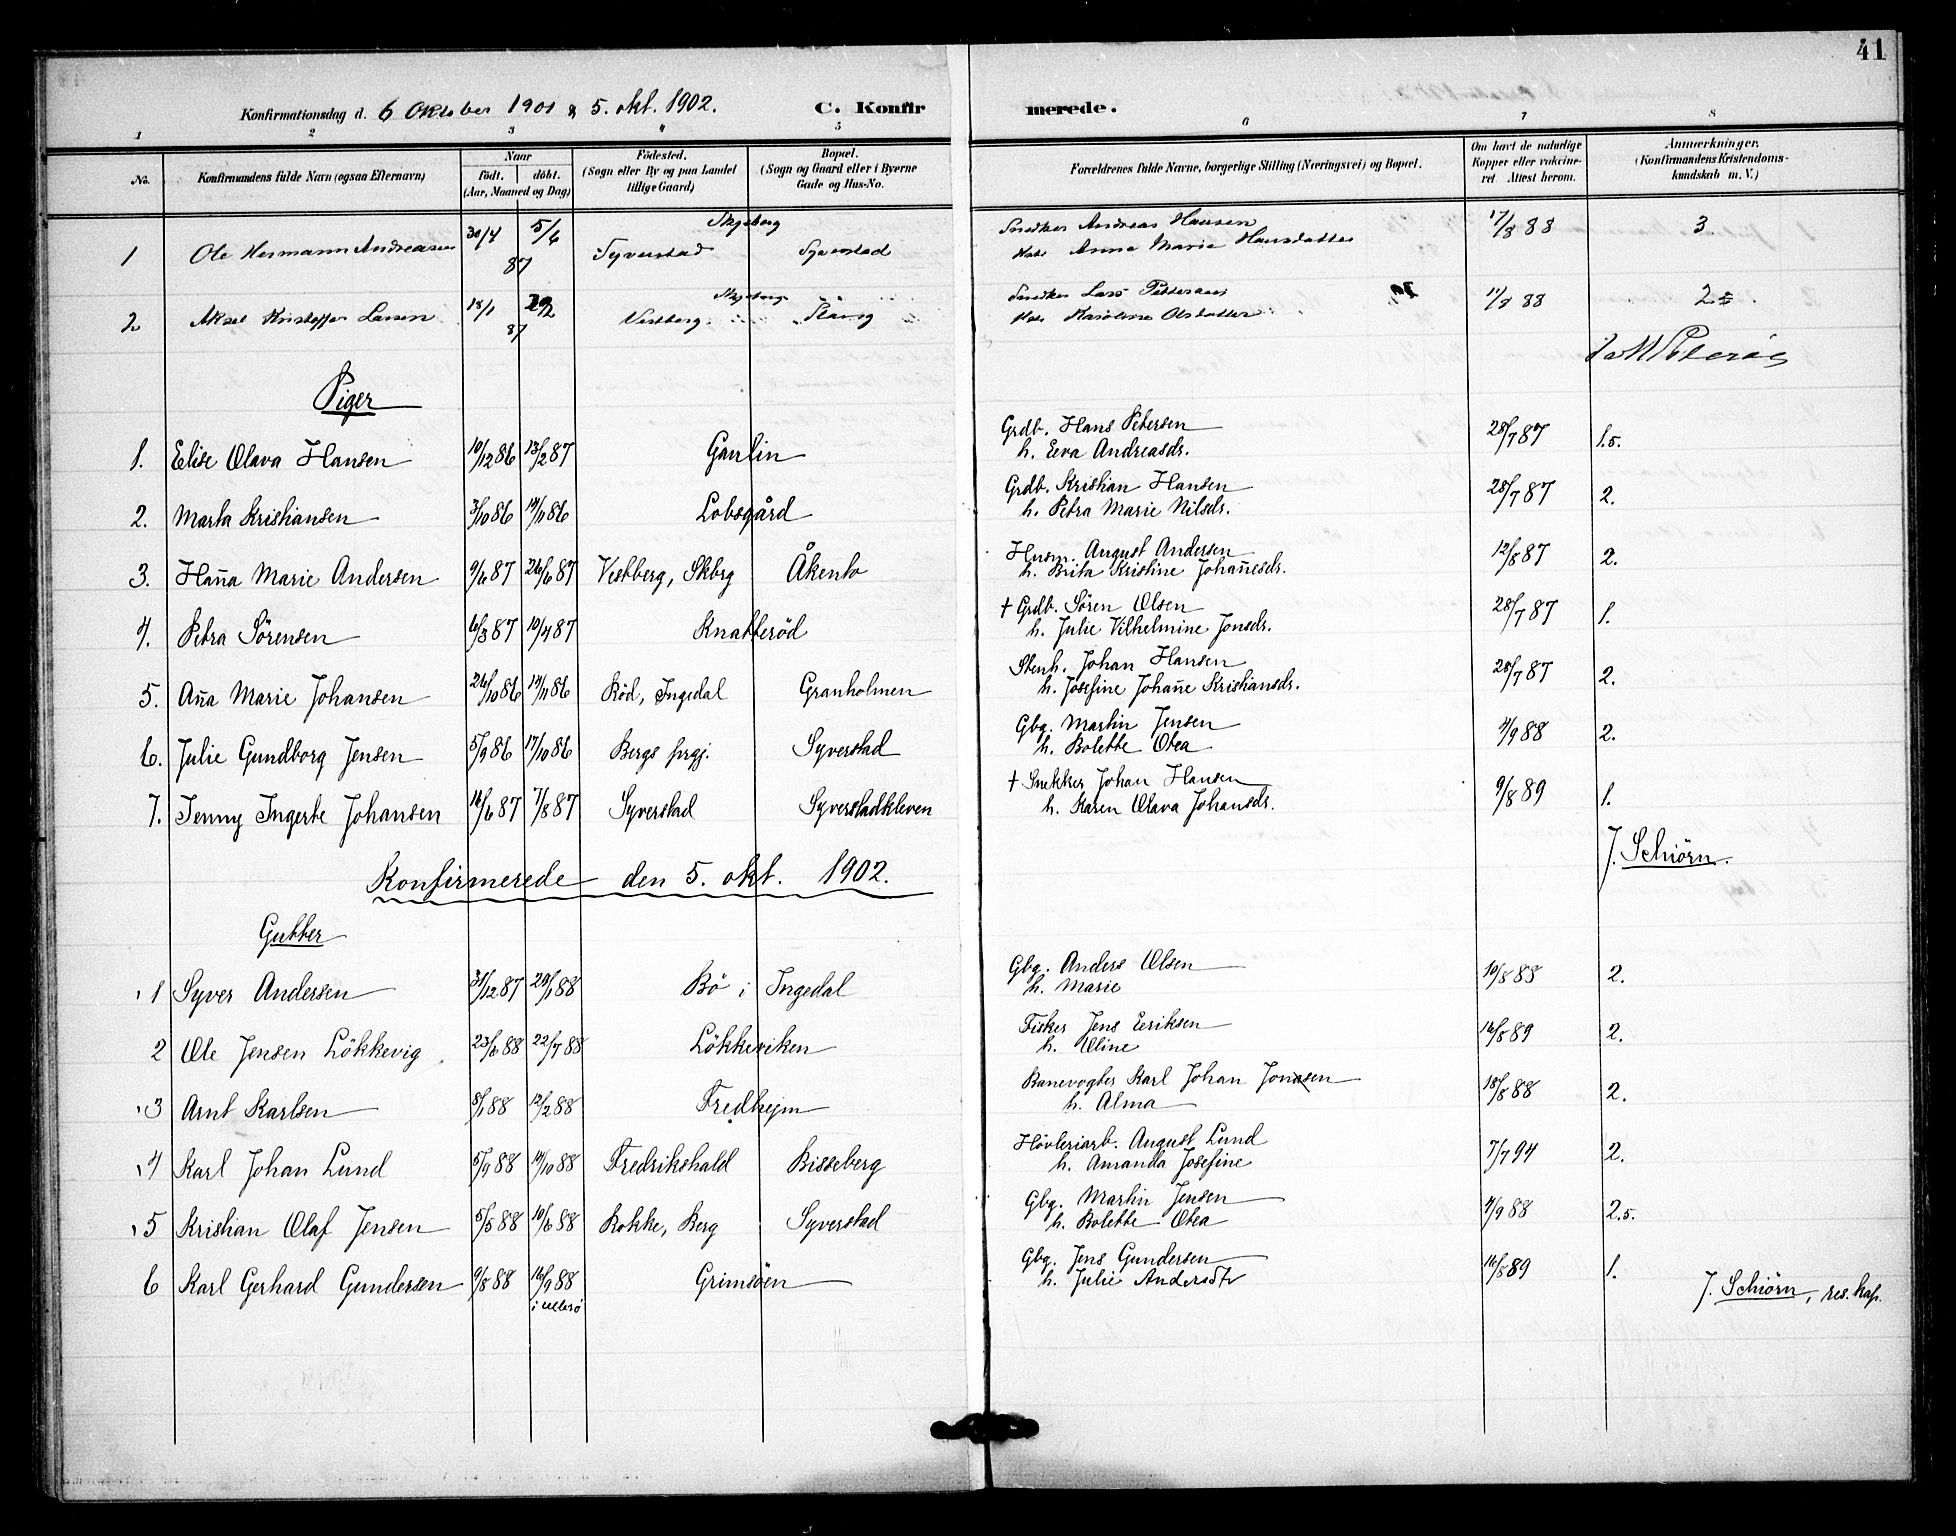 41
Konfirmationsdag d. 6 Oktober 1901 & 5. okt. 1902. C. Konfirmerede.
1 2 3 4 5 6 7 8
No. Konfirmandens fulde Navn (ogsaa Efternavn) Naar født. døbt. (Aar, Maaned og Dag) Födested. (Sogn eller By og paa Landet tillige Gaard) Bopæl. (Sogn og Gaard eller i Byerne Gade og Hus-No. Forældrenes fulde Navne, borgerlige Stilling (Næringsvei) og Bopæl. Om havt de naturlige Kopper eller vakcineret. Attest herom. Anmærkninger. (Konfirmandens Kristendomskundskab m. V.)
1 Ole Hermann Andreasen 30/4 5/6 87 Skjeberg Syverstad Syverstad Snedker Andreas Hansen 17/8 88 3
Hst. Anna Marie Hansdatter
2 Aksel Kristoffer Larsen 18/1 87 Skjeberg Vestberg Snedker Lars Pettersen 88 2
Karoline Olsdatter
Piger
1. Elise Olava Hansen 10/12 86 13/2 87 Gaulin Grdb. Hans Petersen 28/7 87 1.5.
h. Eeva Andreasdr.
2. Marta Kristiansen 3/10 86 14/11 86 Lobsgård Grdb. Kristian Hansen 28/7 87 2.
h. Petra Marie Nilsdr.
3. Han̄a Marie Andersen 9/6 87 26/6 87 Vestberg, Skbrg Åkento Husm. August Andersen 12/8 87 2.
h. Brita Kristine Johan̄esdr.
4. Petra Sörensen 6/3 87 10/4 87 Knatteröd † Grdb. Sören Olsen 28/7 87 1.
h. Julie Vilhelmine Jonsdr.
5. An̄a Marie Johansen 26/10 86 14/11 86 Röd, Ingedal Granholmen Stenh. Johan Hansen 28/7 87 2.
h. Josefine Johan̄e Kristiansdr.
6. Julie Gundborg Jensen 5/9 86 17/10 86 Bergs prgj. Syverstad Gbg. Martin Jensen 4/9 88 2.
h. Bolette Otea
7. Jenny Ingerte Johansen 16/6 87 7/8 87 Syverstad Syverstadkleven † Snekker Johan Hansen 9/8 89 1.
h. Karen Olava Johansdr.
J. Schiørn.
Konfirmerede den 5. okt. 1902.
Gutter
1 Syver Andersen 31/12 87 29/1 88 Bö i Ingedal Gbg. Anders Olsen 10/8 88 2.
h. Marie
2 Ole Jensen Lökkevig 23/6 88 22/7 88 Lökkeviken Fisker Jens Eeriksen 16/8 89 2.
h. Oline
3 Arnt Karlsen 8/1 88 12/2 88 Fredhejm Banevogter Karl Johan Jonasen 18/8 88 2.
h. Alma
4 Karl Johan Lund 5/9 88 14/10 88 Fredrikshald Bisseberg Hövleriarb. August Lund 7/7 94 2.
h. Amanda Josefine
5 Kristian Olaf Jensen 5/5 88 10/6 88 Rokke, Berg Syverstad Gbg. Martin Jensen 4/9 88 2.5.
h. Bolette Otea
6 Karl Gerhard Gundersen 9/8 88 16/9 88 i Ullerö Grimsöen Gbg. Jens Gundersen 16/8 89 1.
h. Julie Andersdtr
J. Schiørn, res. kap.